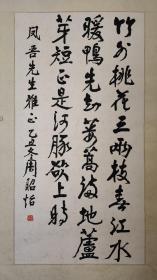 竹外桃花三兩枝春江水
暖鴨先知蔞蒿滿地蘆
芽短正是河豚欲上時
凤吾先生雅正 乙丑冬周韶怡